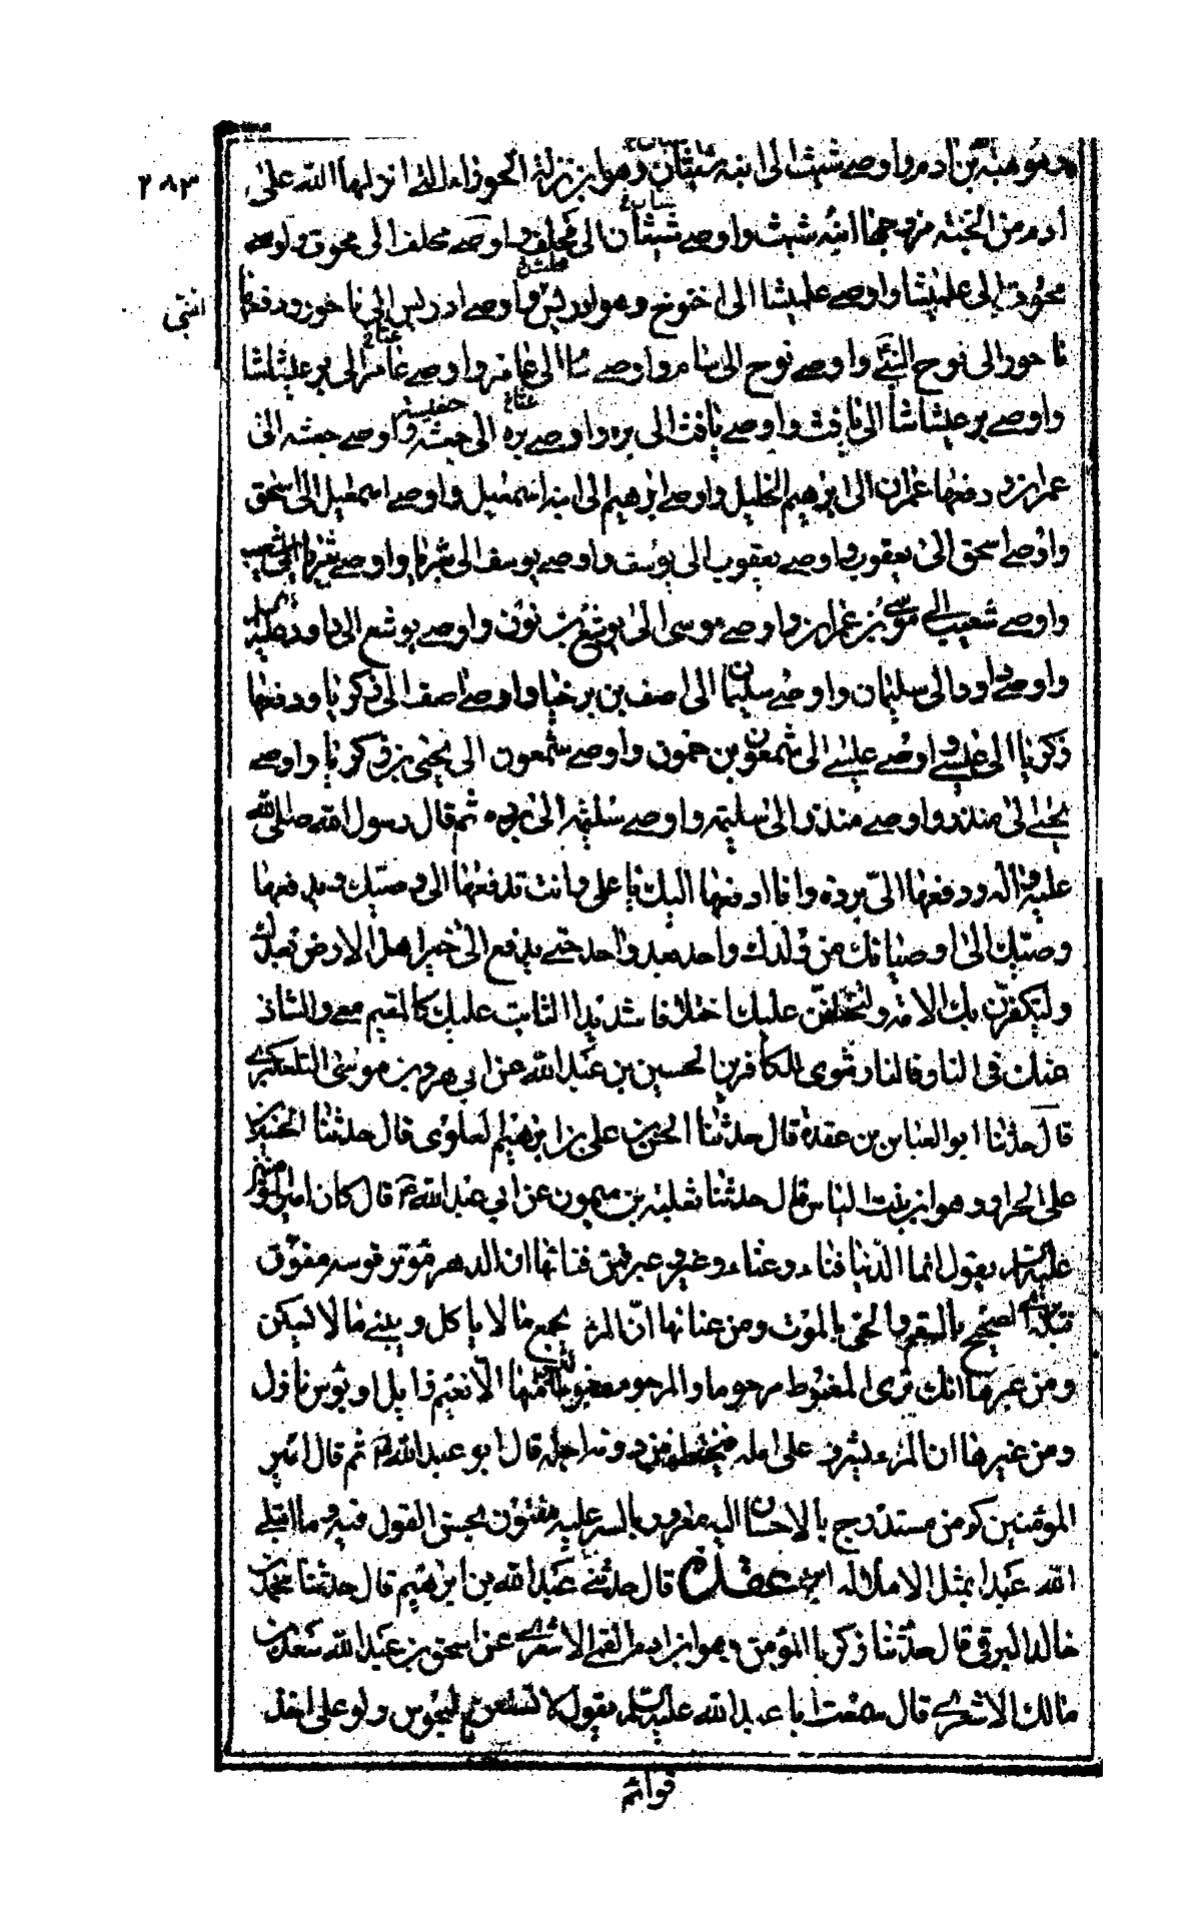 وهو هبة بن ادم واوصى شيث الى ابنه شبان وهو ابن نزلة الحوراء التي انزلها الله على
٢٨٣
ادم من الجنة فزوجها ابنه شيث واوصى شبان الى مجلث واوصى محلث الى محوق واوصى
محوق الى علميشا واوصى علميشا الى اخنوخ وهو ادريس واوصى ادريس الى ناخور ودفعها
ناخور الى نوح النبي واوصى نوح الى سام واوصى سام الى عثامر واوصى عثامر الى برعيثاشا
واوصى برعيثاشا الى يافث واوصى يافث الى بره واوصى بره الى جفسيه واوصى جفسه الى
عمران ودفعها عمران الى ابرهيم الخليل واوصى ابرهيم الى ابنه اسمعيل واوصى اسمعيل الى اسحق
واوصى اسحق الى يعقوب واوصى يعقوب الى يوسف واوصى يوسف الى بثريا واوصى بثريا الى شعيب
واوصى شعيب الى موسى بن عمران واوصى موسى الى يوشع بن نون واوصى يوشع الى داود
واوصى داود الى سليمان واوصى سليمان الى اصف بن برخيا واوصى اصف الى زكريا ودفعها
زكريا الى عيسى واوصى عيسى الى شمعون بن حمون واوصى شمعون الى يحيى بن زكريا واوصى
يحيى الى منذر واوصى منذر الى سليمه واوصى سليمه الى برده ثم قال رسول الله صلى الله
عليه واله ودفعها الي برده وانا ادفعها اليك يا على وانت تدفعها الى وصيك ويدفعها
وصيك الى اوصيائك من ولدك واحد بعد واحد حتى يدفع الى خير اهل الارض بعدك
ولتكفرن بك الامة ولتختلفن عليك اختلافا شديدا الثابت عليك كالمقيم معي والشاذ
عنك فى النار والنار مثوى للكافرين الحسين بن عبد الله عن ابي هرون بن موسى التلعكبرى
قال حدثنا ابو العباس بن عقدة قال حدثنا الحسن بن على بن ابرهيم العلوى قال حدثنا الحسين بن
على الحراز وهو ابن بنت الياس قال حدثنا ثعلبة بن ميمون عن ابي عبد الله ع قال كان امير المؤمنين
عليه السلام يقول انما الدنيا فناء وعناء وغير وعبر فمن فنائها ان الدهر موتر قوسه مفوق
نبله الصحيح بالسقم والحى بالموت ومن عنائها ان المرء يجمع ما لا ياكل ويبني ما لا يسكن
ومن عبرها انك ترى المغبوط مرحوما والمرحوم مغبوطا ليس منها الا نعيم زايل او بؤس نازل
ومن غيرها ان المرء يشرف على امله فيختطفه من دونه اجله قال ابو عبد الله ع ثم قال امير
المؤمنين كم من مستدرج بالاحسان اليه مغرور بالستر عليه مفتون بحسن القول فيه وما ابتلى
الله عبدا بمثل الاملاء له ابن عقدة قال حدثني عبد الله بن ابرهيم قال حدثنا محمد بن
خالد البرقي قال حدثنا زكريا المؤمن وهو ابن ادم القمى الاشعرى عن اسحق بن عبد الله سعد بن
مالك الاشعرى قال سمعت ابا عبد الله عليه السلم يقول لا تستعن بالمجوس ولو على اخذ
قوائم